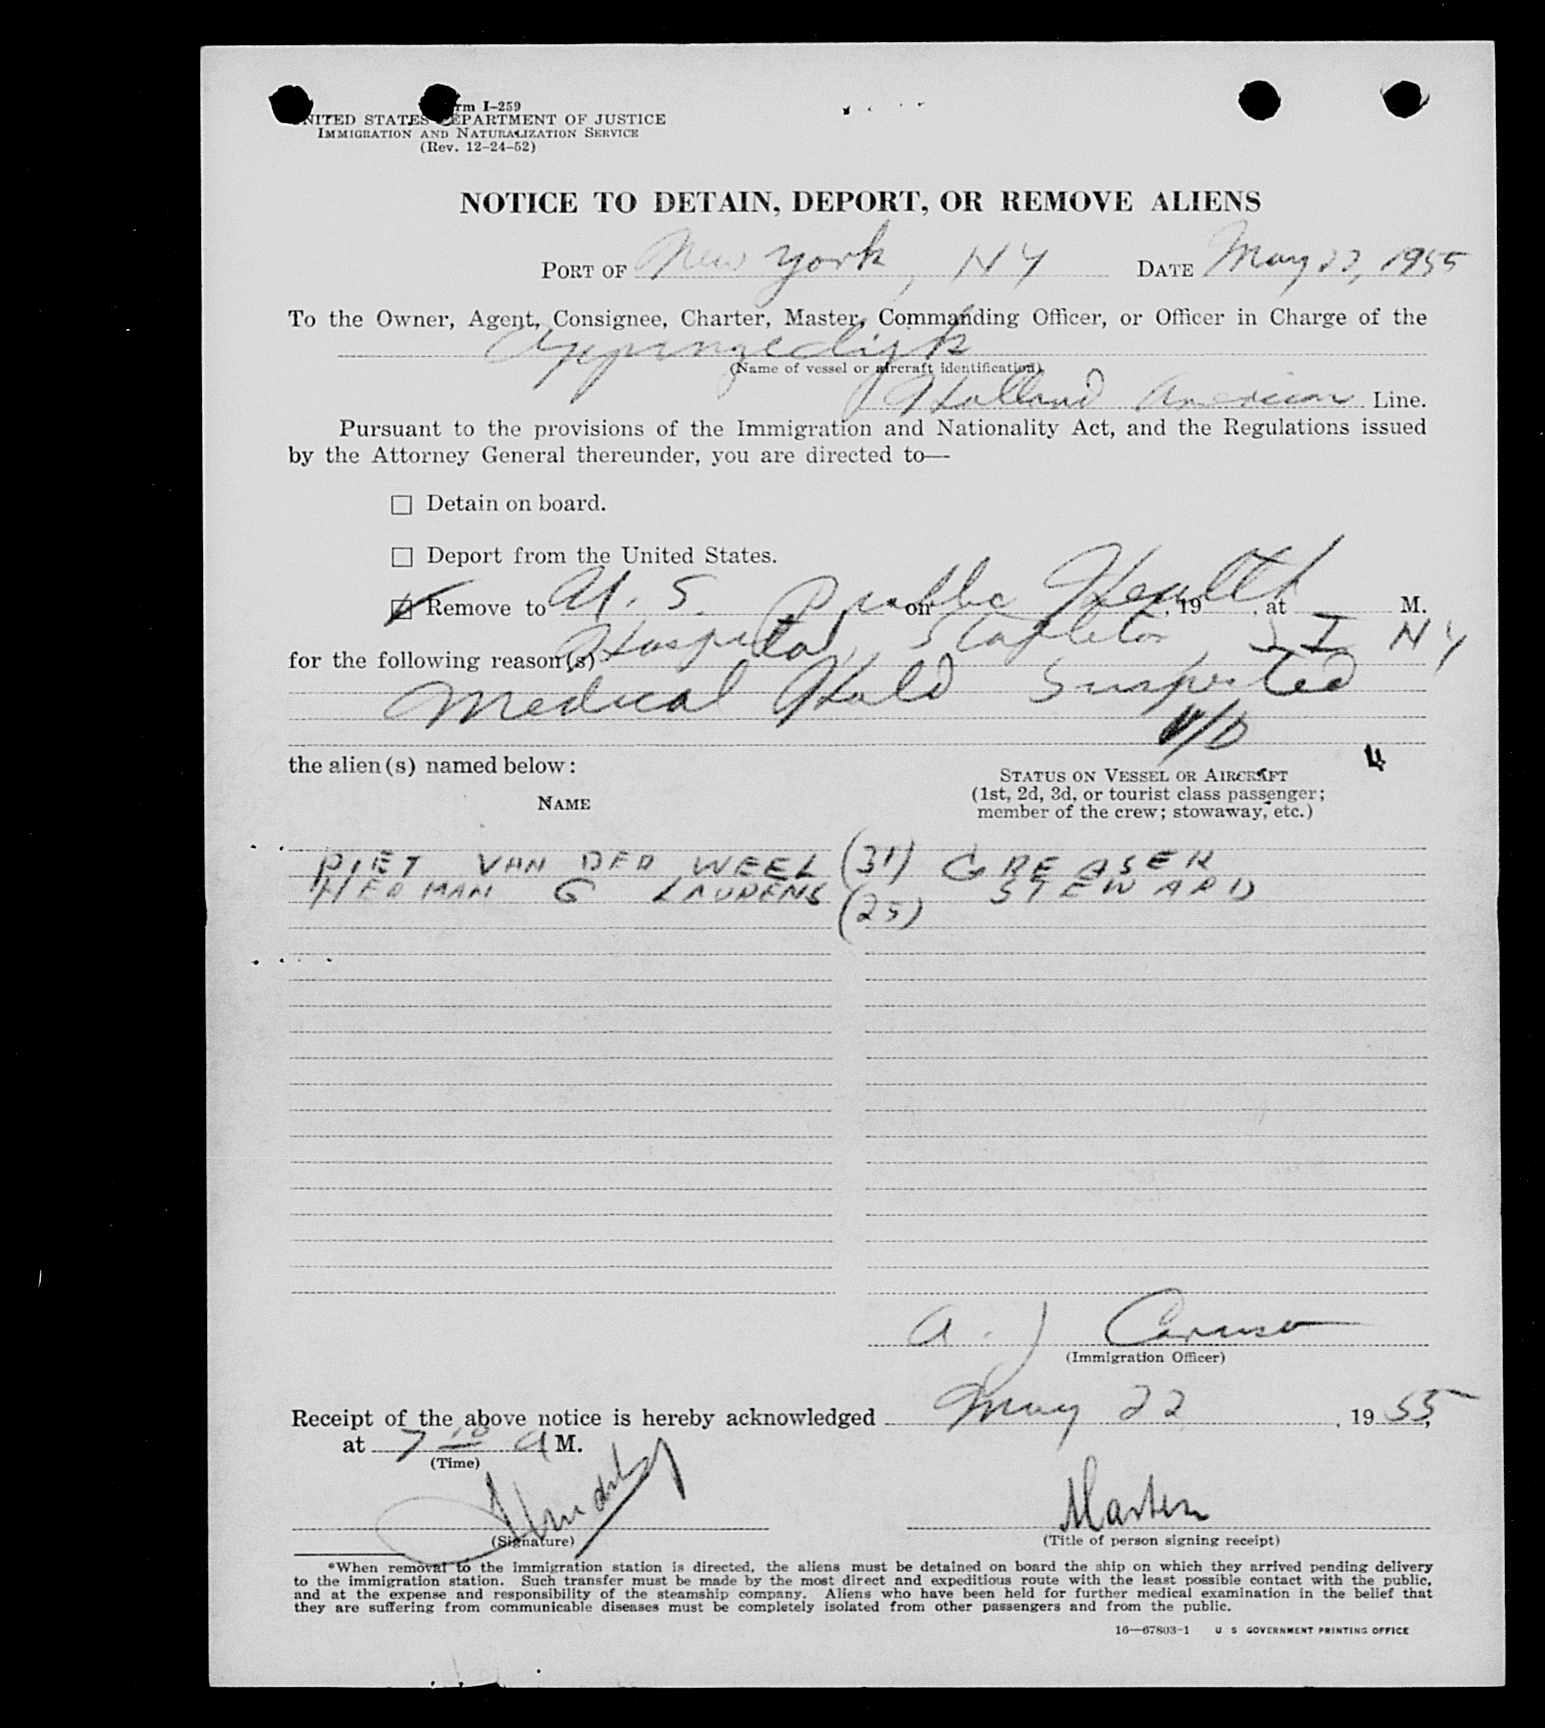 Form I-259
UNITED STATES DEPARTMENT OF JUSTICE
IMMIGRATION AND NATURALIZATION SERVICE
(Rev. 12-24-52)
NOTICE TO DETAIN, DEPORT, OR REMOVE ALIENS
PORT OF New York, NY DATE May 22, 1955
To the Owner, Agent, Consignee, Charter, Master, Commanding Officer, or Officer in Charge of the
Appingedijk
(Name of vessel or aircraft identification)
Holland American Line.
Pursuant to the provisions of the Immigration and Nationality Act, and the Regulations issued
by the Attorney General thereunder, you are directed to—
☐ Detain on board.
☐ Deport from the United States.
☑ Remove to U. S. Public Health *on , 19 , at M.
Hospital, Stapleton, S I NY
for the following reason(s)
Medical Hold Suspected
V/D
the alien(s) named below:
4
NAME
STATUS ON VESSEL OR AIRCRAFT
(1st, 2d, 3d, or tourist class passenger;
member of the crew; stowaway, etc.)
PIET VAN DER WEEL (31) GREASER
HERMAN G LAURENS (25) STEWARD
A. J Caruso
(Immigration Officer)
Receipt of the above notice is hereby acknowledged May 22, 1955,
at 7 10 A M.
(Time)
(Signature)
Master
(Title of person signing receipt)
*When removal to the immigration station is directed, the aliens must be detained on board the ship on which they arrived pending delivery
to the immigration station. Such transfer must be made by the most direct and expeditious route with the least possible contact with the public,
and at the expense and responsibility of the steamship company. Aliens who have been held for further medical examination in the belief that
they are suffering from communicable diseases must be completely isolated from other passengers and from the public.
16—67803-1 U S GOVERNMENT PRINTING OFFICE